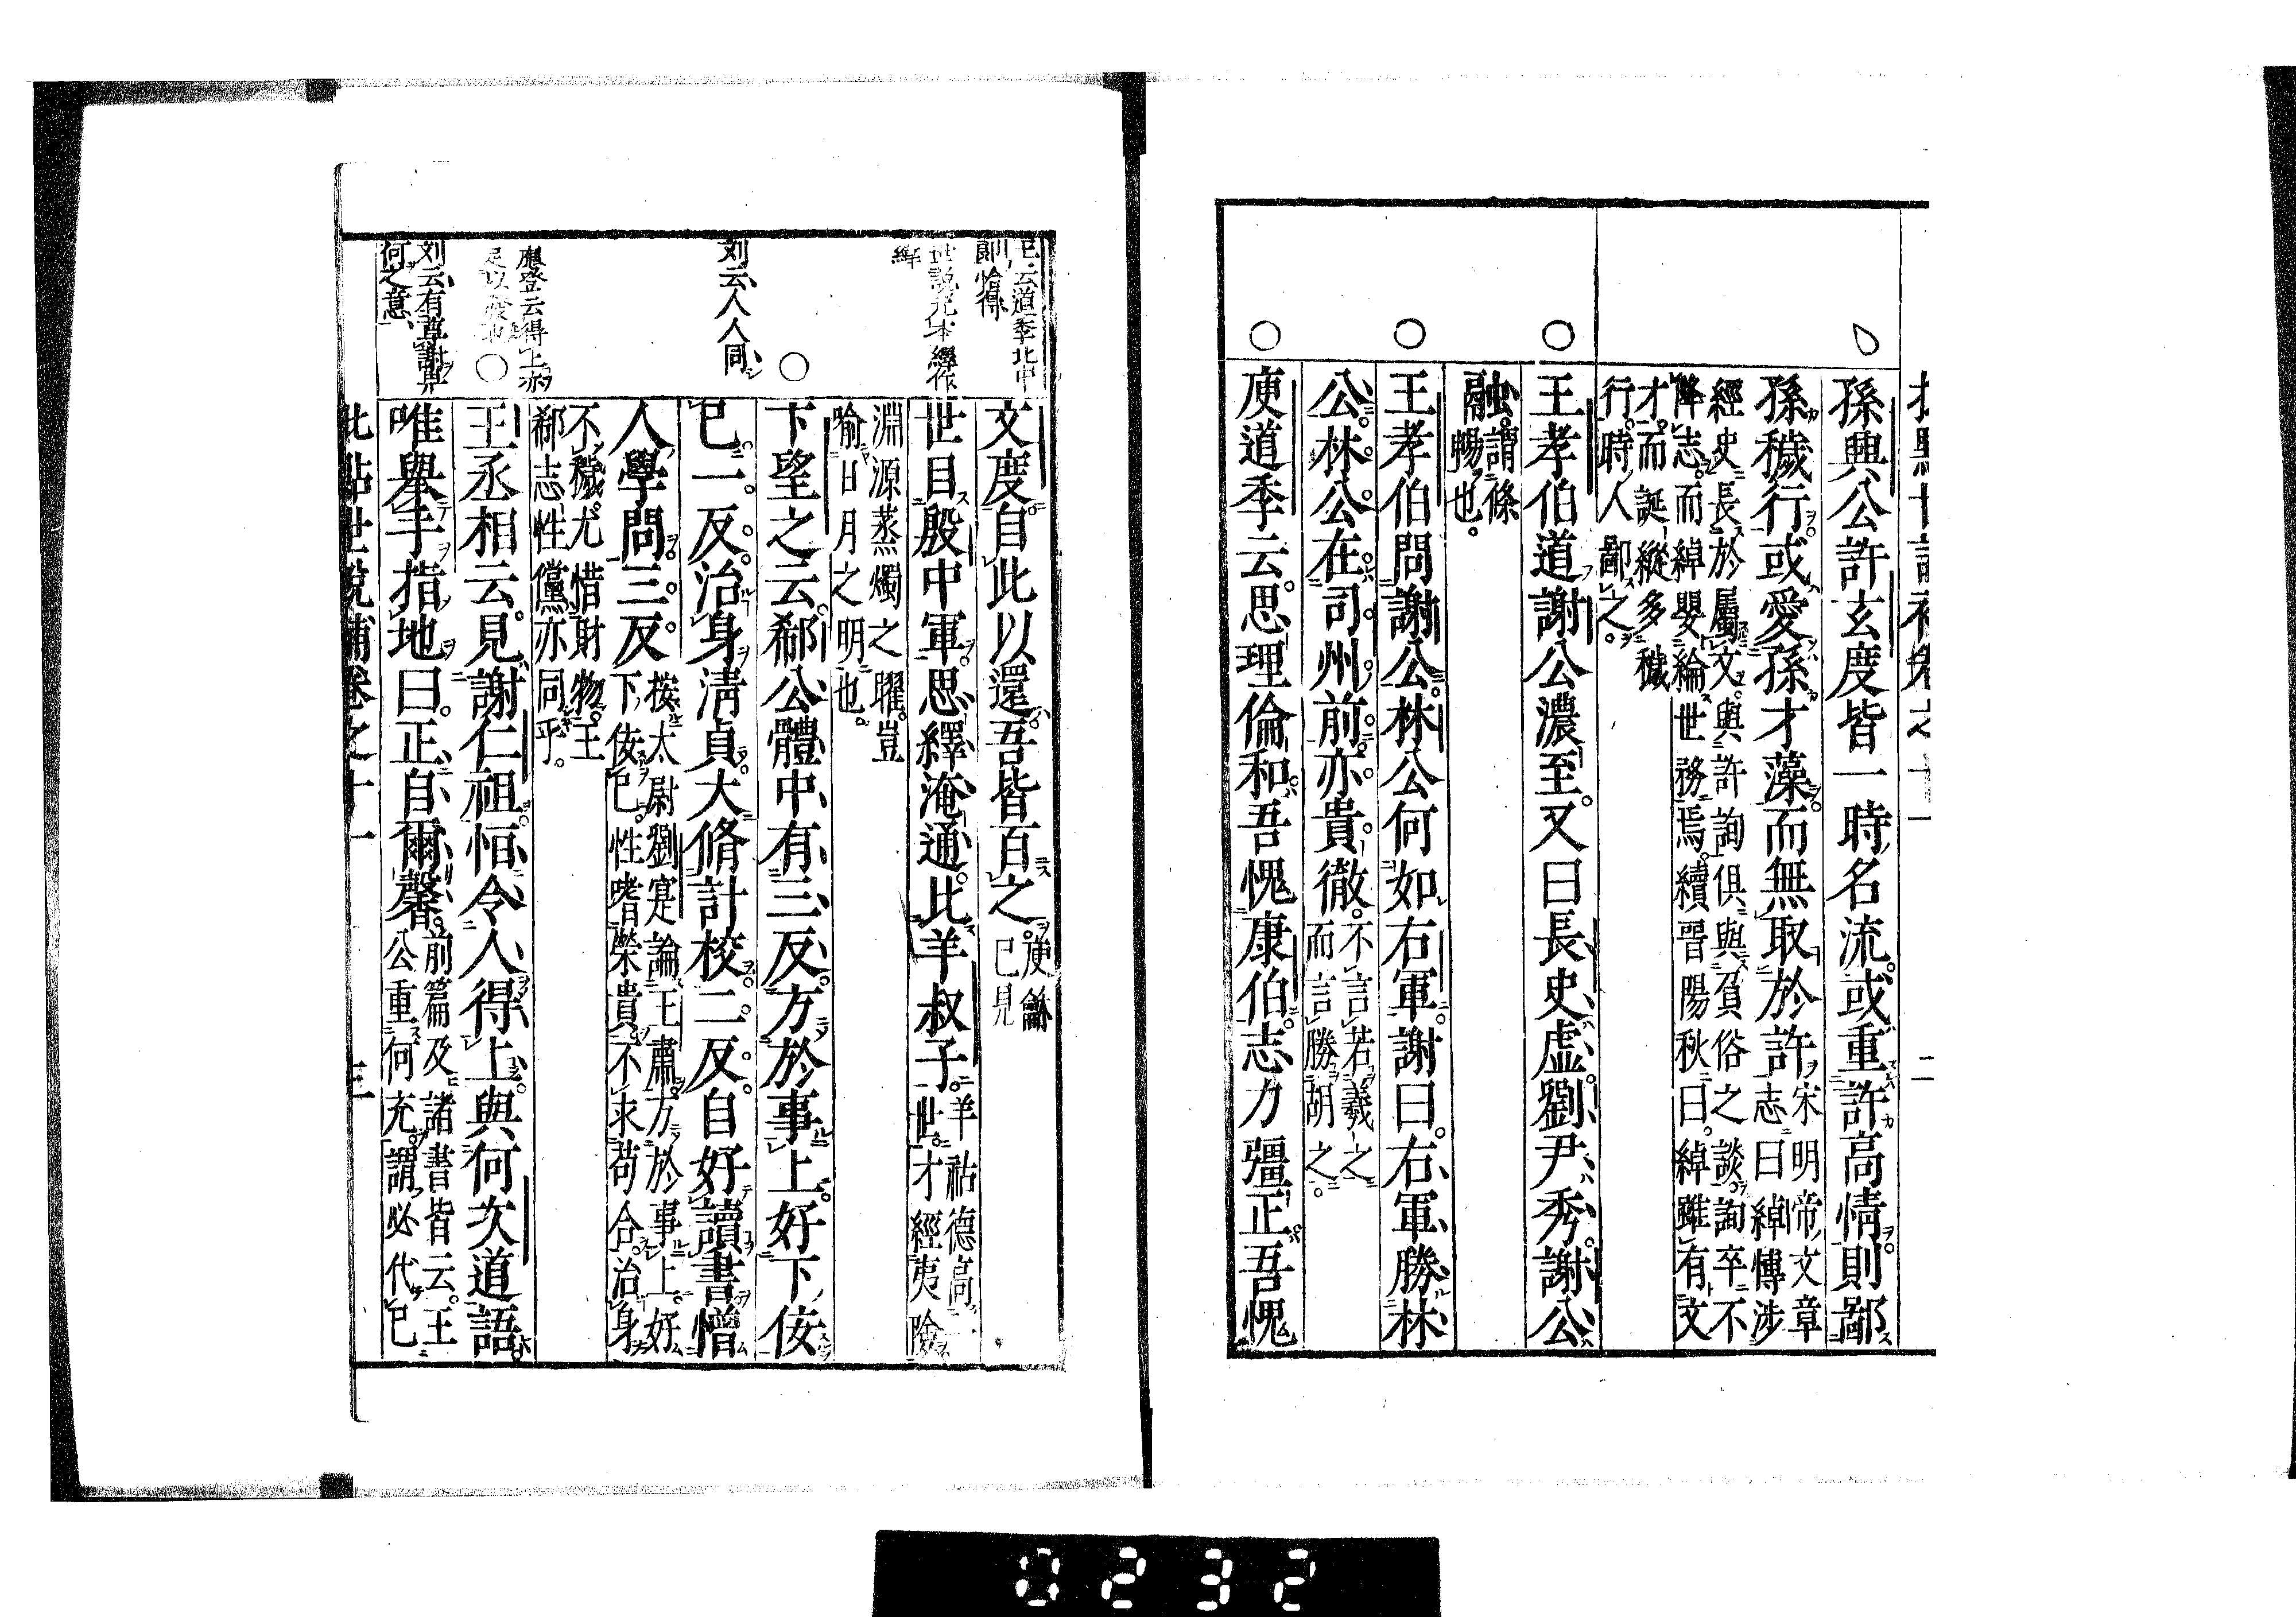 孫興公許玄度皆一時名流。或重許高情則鄙
孫穢行或愛孫才藻。而無取於許。
宋明帝文章
志曰綽博涉
經史長於屬文。與許詢俱與負俗之談。詢卒不
降志。而綽嬰綸世務焉。續晉陽秋曰。綽雖有文
才。而誕縱多穢
行。時人鄙之。
王孝伯道謝公濃至。又曰長史虛。劉尹秀。謝公
融。
謂條
暢也。
王孝伯問謝公。林公何如右軍。謝曰。右軍勝林
公。林公在司州前。亦貴徹。
不言若羲之
而言勝胡之。
庾道季云。思理倫和。吾愧康伯。志力彊正吾愧
二
王云道季北中
郎恰得
世說元本繹作
刘云人人同
應登云得上亦
刘云有尊謝卑
何之意
文度。自此以還。吾皆百之。
庾龢
已見
世目殷中軍。思繹淹通。比羊叔子。
羊祜德高一
世。才經夷險
淵源蒸燭之曜。豈
喻日月之明也。
卞望之云。郗公體中有三反。方於事上。好下佞
已。一反。治身清貞。大脩計校。二反。自好讀書憎
人學問。三反。
按太尉劉寔論王肅。方於事上。好
下佞已。性嗜榮貴。不求苟合。治身
不穢。尤惜財物。王
郗志性儻亦同乎。
王丞相云。見謝仁祖。恒令人得上。與何次道語。
唯舉手指地曰。正自爾馨。
前篇及諸書皆云。王
公重何充。謂必代已
批點世說補卷之十一
三
0232